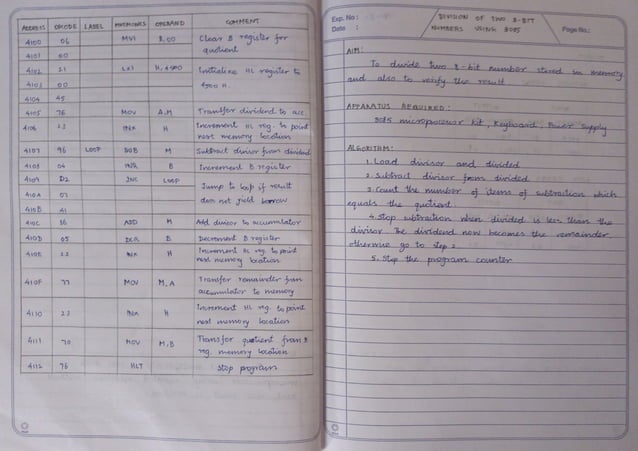 ADDRESS OPCODE LABEL MNEMONICS OPERAND COMMENT
4100 06 MVI B, 00 Clear B register for
quotient
4101 00
4102 21 LXI H, 4500 Initialize HL register to
4500 H
4103 00
4104 45
4105 7E MOV A,M Transfer dividend to acc
4106 23 INX H Increment HL reg. to point
next memory location
4107 96 LOOP SUB M Subtract divisor from dividend
4108 04 INR B Increment B register
4109 D2 JNC LOOP Jump to loop if result
does not yield borrow
410A 07
410B 41
410C 86 ADD M Add divisor to accumulator
410D 05 DCR B Decrement B register
410E 23 INX H Increment HL reg. to point
next memory location
410F 77 MOV M, A Transfer remainder from
accumulator to memory
4110 23 INX H Increment HL reg. to point
next memory location
4111 70 MOV M,B Transfer quotient from B
reg. memory location
4112 76 HLT Stop program
Exp. No :
Date :
DIVISION OF TWO 8-BIT
NUMBERS USING 8085
Page No.:
AIM:
To divide two 8-bit number stored in memory
and also to verify the result
APPARATUS REQUIRED:
8085 microprocessor kit, Keyboard, Power Supply
ALGORITHM:
1. Load divisor and divided
2. Subtract divisor from divided
3. Count the number of items of subtraction which
equals the quotient.
4. Stop subtraction when divided is less than the
divisor. The dividend now becomes the remainder
otherwise go to step 2.
5. Stop the program counter